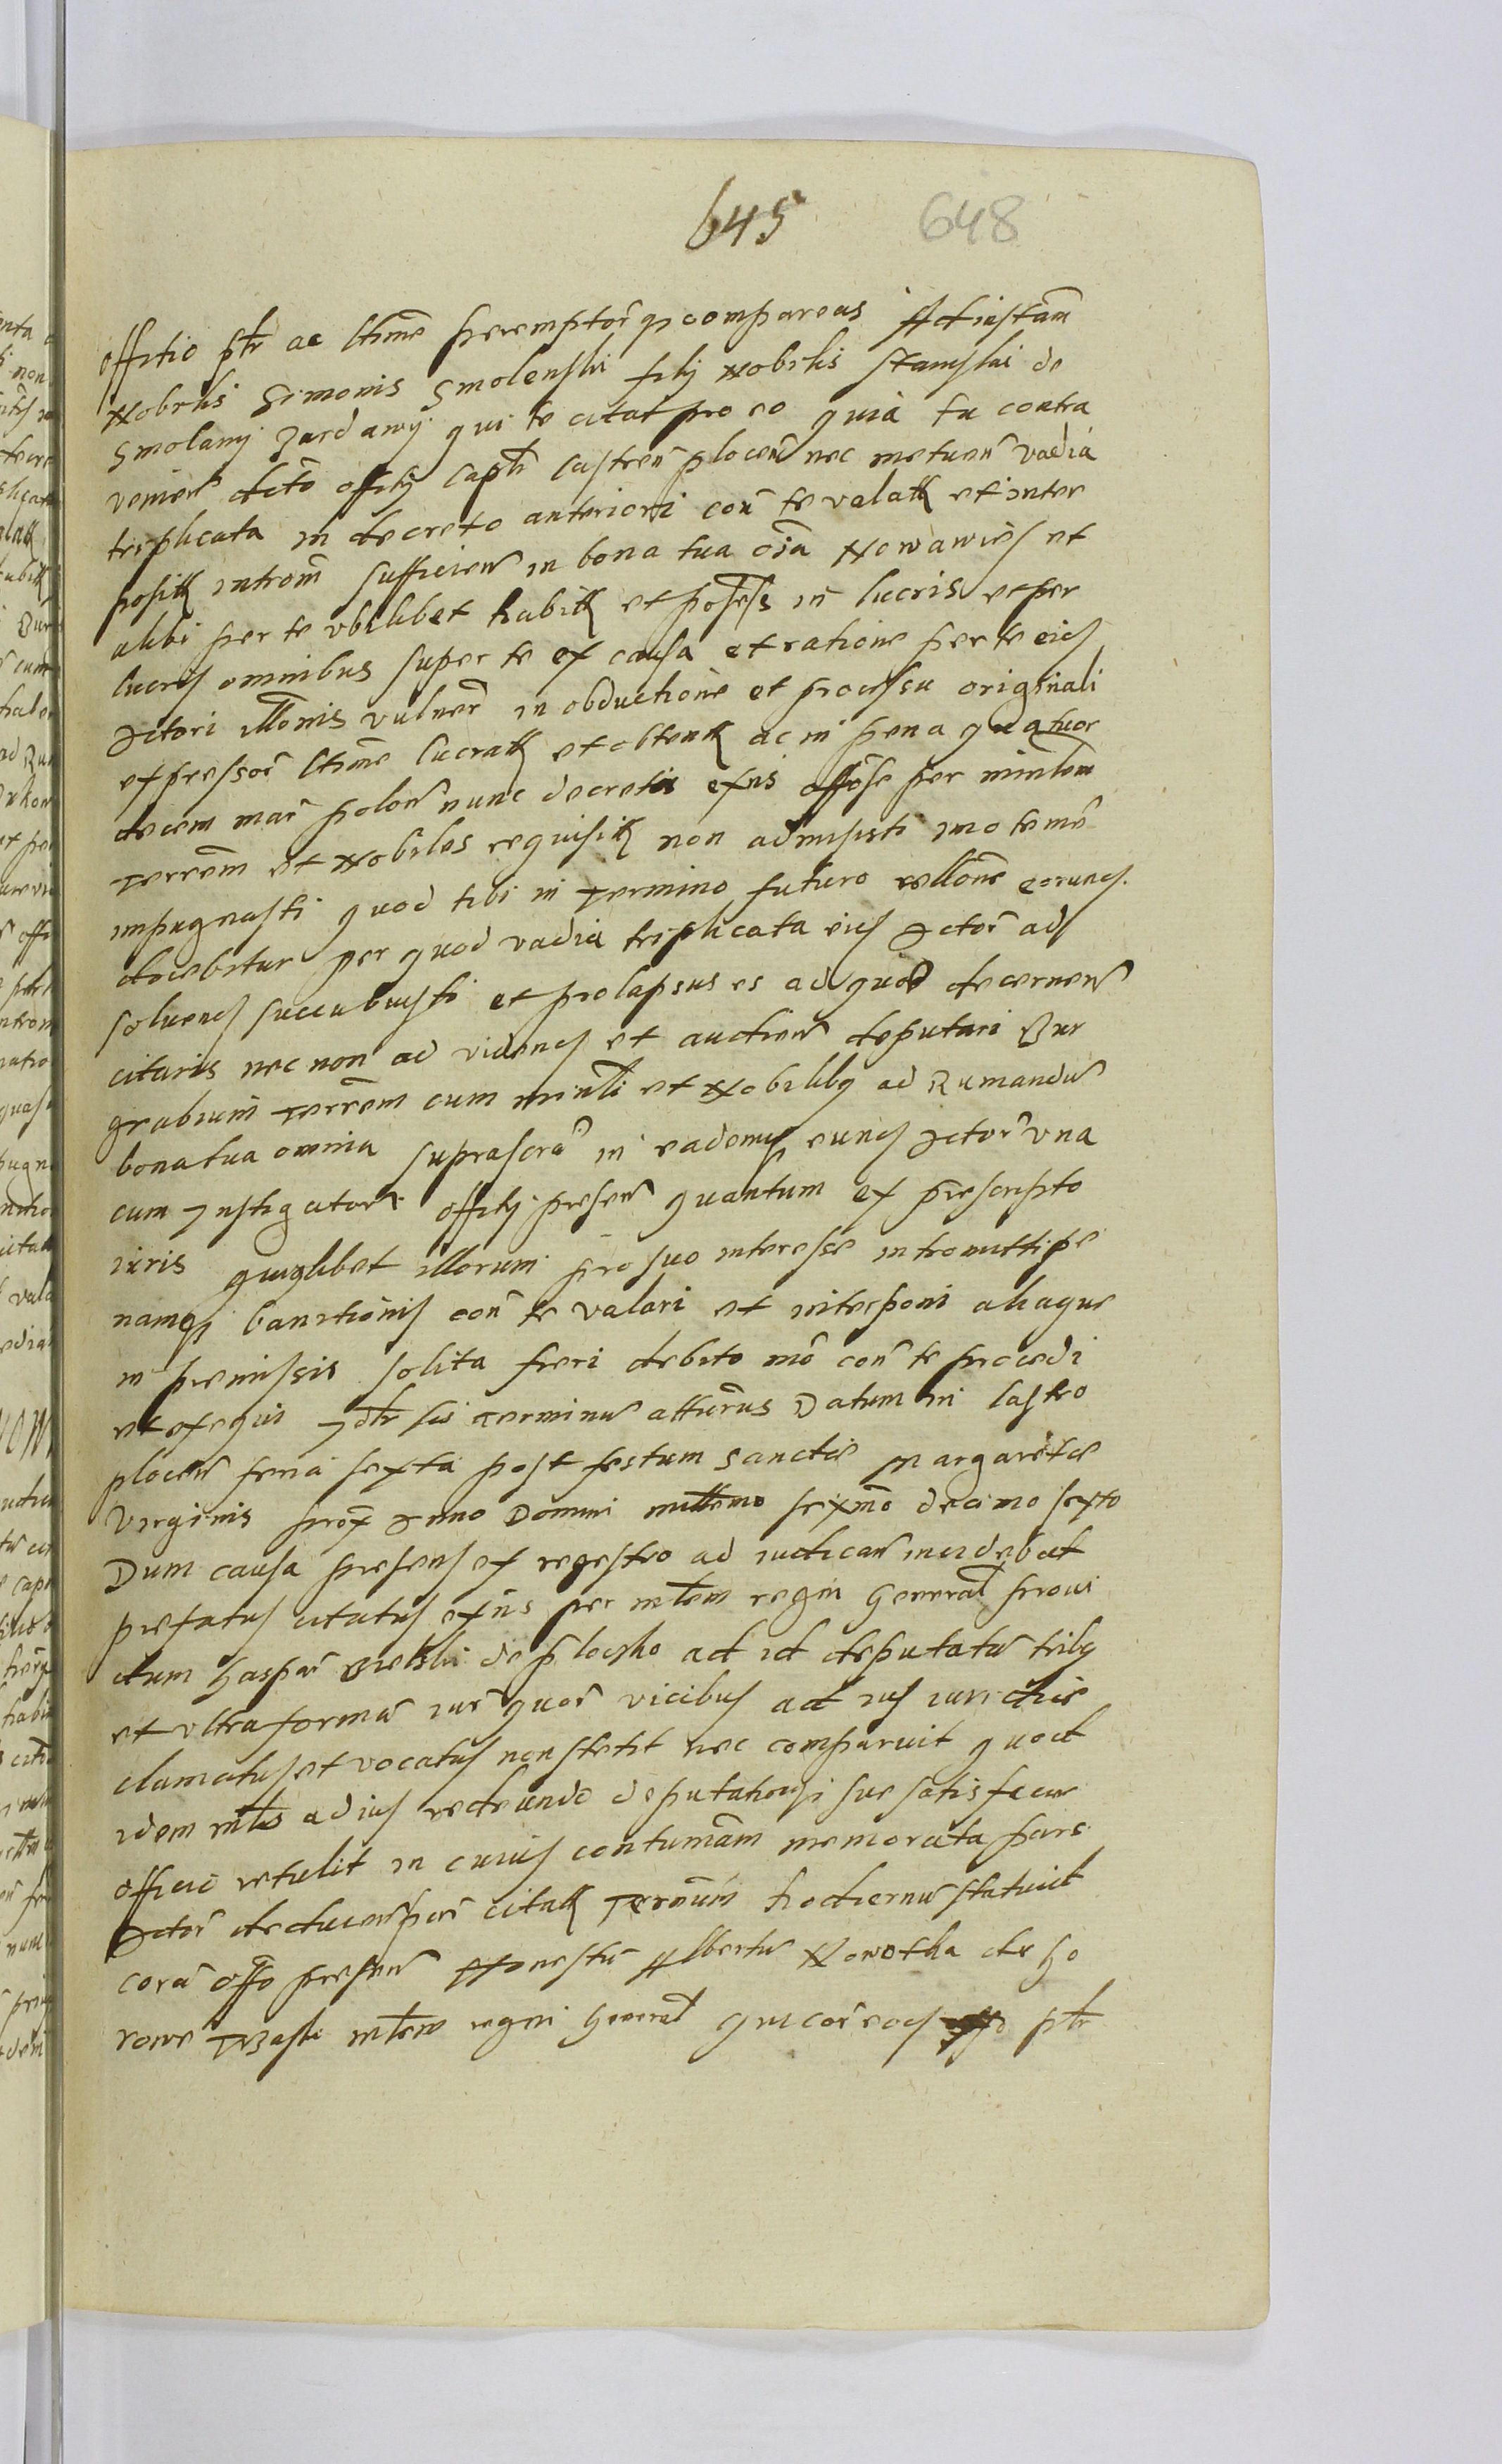 645 648
offitio ptr ac ltime peremptor qs compareas Ad instam
Nobilis Simonis Smolenski filij Nobilis Stanislai de
Smolany Zardawy qui te citat pro eo quia tu contra
venien dcto offitij Captl Castren plocen nec metuen vadia
triplicata in decreto anteriori con te valatt et inter
positt introm sufficien in bona tua oia Nowawies et
alibi per te vbilibet habitt et possess in lucris et per
lucris omnibus super te ex causa et ratione per te eid
Actori illonis vulner in obductione et processu originali
expressor ltime lucratt et obtentt ac in pena quatuor
decem mar polon nunc decreta exns offose per mintem
Terrem et Nobiles requisitt non admisisti imo teme
impugnasti quod tibi in Termino futuro rellone eorund
docebitur per quod vadia triplicata eid Actor ad
soluend succubuisti et prolapsus es ad quod decernen
citaris nec non ad vidend et audien deputari Bur
grabium Terrem cum mintli et Nobilibq ad Rumandu
bona tua omnia suprascra in eademq eund Actor vna
cum Instigatore offitij presen quantum ex prescripto
iuris quiqlibet illorum pro suo interesse intromitti pe
namq banitionis con te valari et interponi aliaque
in premissis solita fieri debito mo con te procedi
et exequi Idtr sis Terminu atturus Datum in Castro
plocen feria sexta post festum Sanctae Margaretae
Virginis prox Anno Domini millemo sexmo decimo sexto
Dum causa presens ex regestro ad iudican incidebat
prefatus citatus exns per mtem regni General provi
dum Gaspar Bielski de Plocsko ad id deputatu tribq
et vltra forma iur quor vicibus ad ius iuridice
clamatus et vocatus non stetit nec comparuit quod
idem mtlis ad ius redeundo deputationi sue satisfacien
officio retulit in cuius contumam memorata pars
Actor deducen par citatt Terminum hodiernu statuit
cora offo presen Honestu Albertu Nowotka de Go
rowe mtem regni General qui cor eod offo ptr